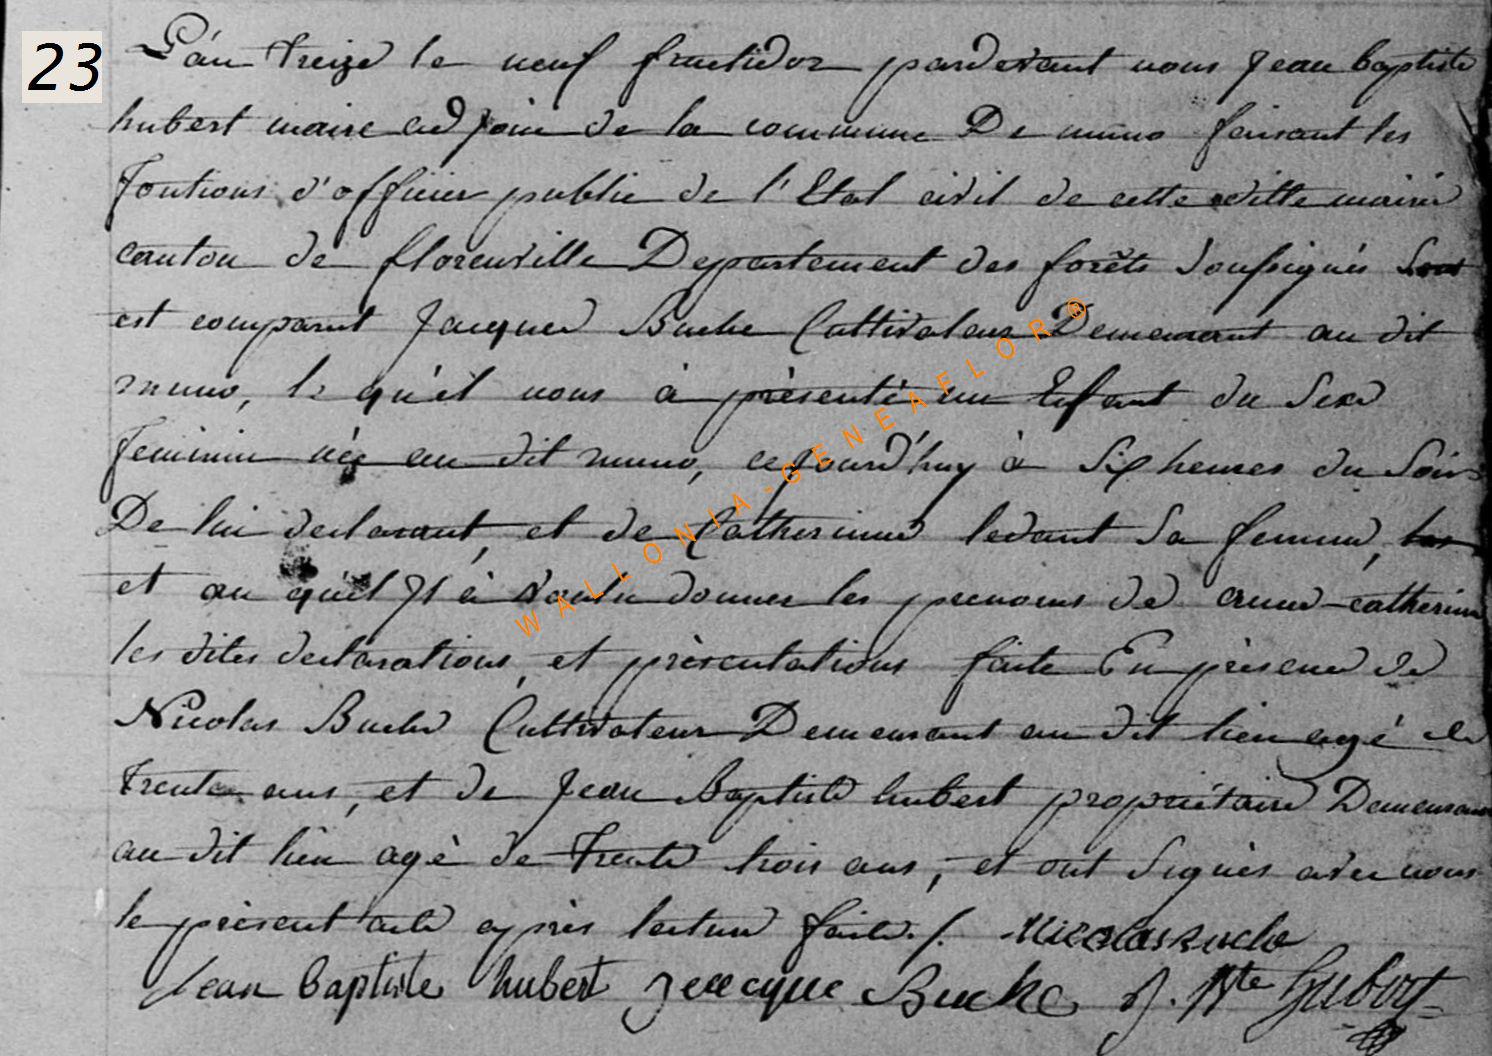 23
L'an treize le neuf fructidor pardevant nous Jean baptiste
hubert maire adjoin de la commune De muno faisant les
fontions d'officier public de l'Etat civil de cette ditte mairie
canton de florenville Departement des forêts soussignés
est comparut Jacques Buche Cultivateur Demeurant au dit
muno, le quél nous à présenté un Enfant du Sexe
feminin née au dit muno, cejourd'huy à Six heures du Soir
De lui declarant, et de Catherinne levant Sa femme,
et au quél Jl à voulu donner les prenoms de anne-catherine
les dites declarations, et présentations faite En présence de
Nicolas Buche Cultivateur Demeurant au dit lieu agé de
trente ans, et de Jean Baptiste hubert propriétaire Demeurant
au dit lieu agé de trente trois ans, et ont Signés avec nous
le présent acte après lecture faite./. Nicolas buche
Jean baptiste hubert Jeacque Buche J. Bte Hubert
WALLONIA-GENEAFLOR®